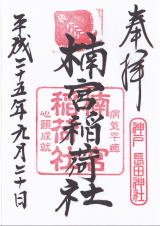 奉拝
楠宮稲荷社
平成二十五年九月二十日
南宮
稲荷社
病気平癒
心願成就
神戸 長田神社